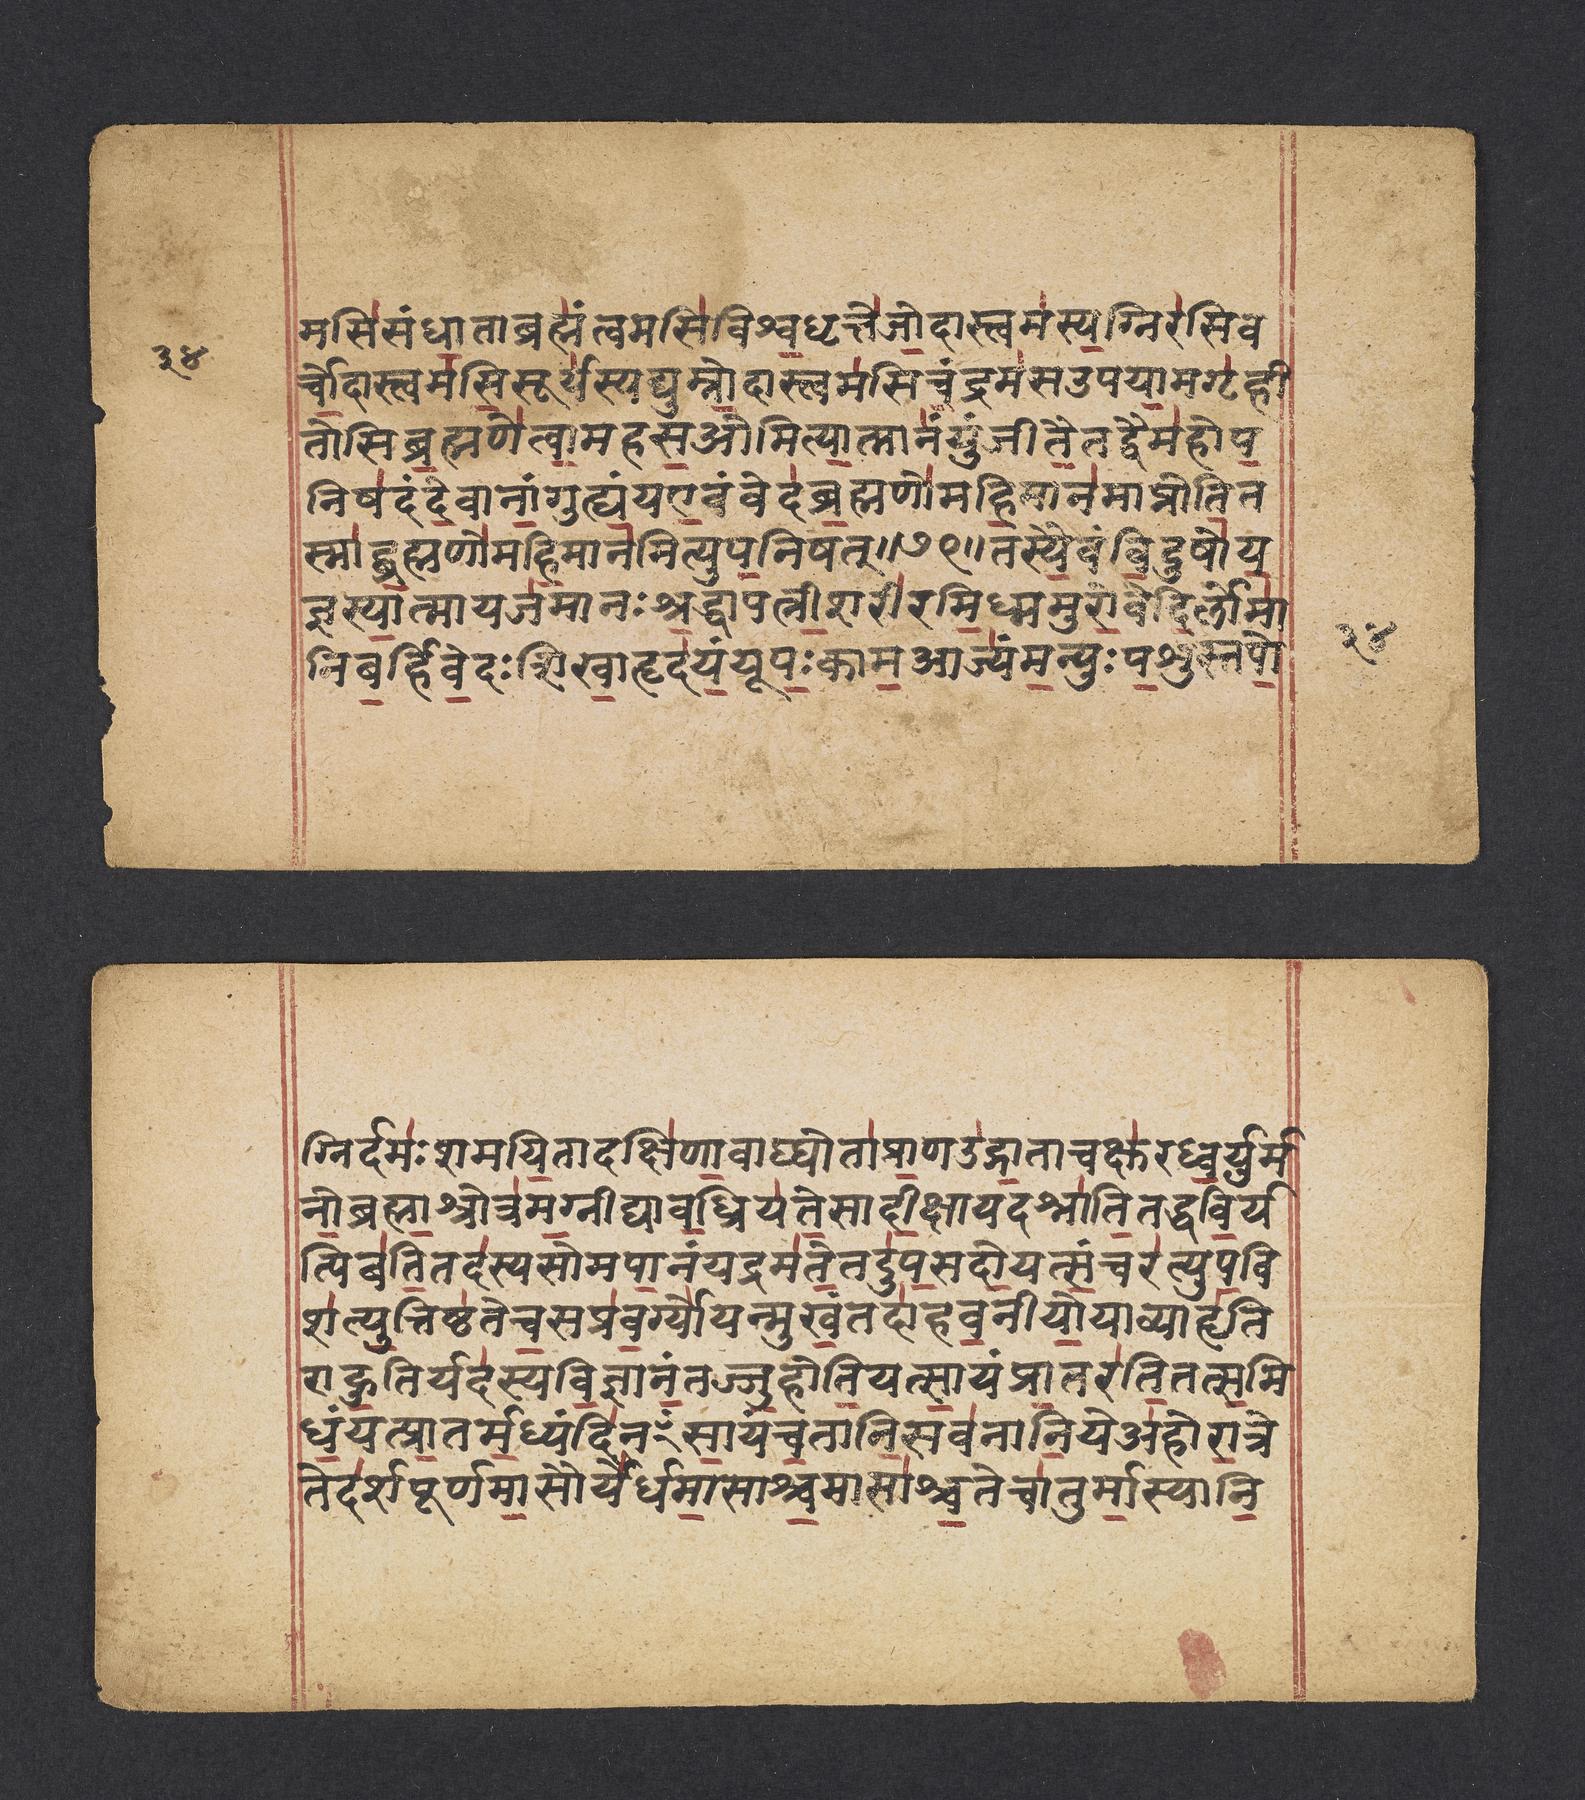 ३४
मसिसंधाताब्रह्मंत्वमसिविश्वधृत्तेजोदास्त्वमस्यग्निरसिव
र्चोदास्त्वमसिसूर्यस्यद्युम्नोदास्त्वमसिचंद्रमसउपयामगृही
तोसिब्रह्मणेत्वामहसओमित्यात्मानंयुंजीतेतद्वैमहोप
निषदंदेवानांगुह्यंयएवंवेदब्रह्मणोमहिमानमाप्नोतित
स्माद्ब्रह्मणोमहिमानमित्युपनिषत्॥७९॥तस्यैवंविदुषोय
ज्ञस्यात्मायजमानःश्रद्धापत्नीशरीरमिध्ममुरोवेदिर्लोमा
निबर्हिर्वेदःशिखाहृदयंयूपःकामआज्यंमन्युःपशुस्तपो
३४
ग्निर्दमःशमयितादक्षिणावाग्घोताप्राणउद्गाताचक्षुरध्वर्युर्म
नोब्रह्माश्रोत्रमग्नीद्यावध्रियतेसादीक्षायदश्नातितद्धविर्य
त्पिबतितदस्यसोमपानंयद्रमतेतदुपसदोयत्संचरत्युपवि
शत्युत्तिष्ठतेचसप्रवर्ग्योयन्मुखंतदाहवनीयोयाव्याहृति
राहुतिर्यदस्यविज्ञानंतज्जुहोतियत्सायंप्रातरतितत्समि
धंयत्प्रातर्मध्यंदिनꣳसायंचतानिसवनानियेअहोरात्रे
तेदर्शपूर्णमासौयेर्धमासाश्चमासाश्चतेचातुर्मास्यानि